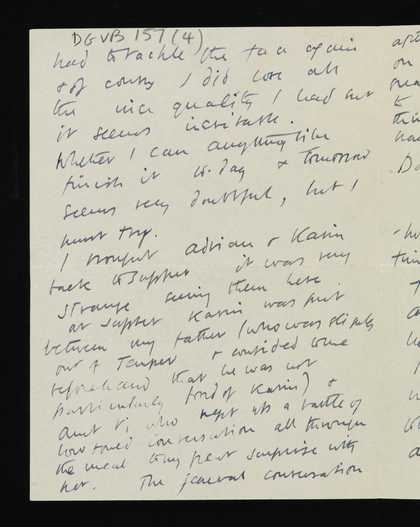 DGVB 157 (4)
had to tackle the face again
& of course I did lose all
the nice quality I had but
it seems inevitable.
Whether I can anything like
finish it to-day & tomorrow
seems very doubtful, but I
must try.
I brought Adrian & Karin
back to supper it was very
strange seeing them here
at supper Karin was put
between my father (who was slightly
out of temper & confided to me
beforehand that he was not
particularly fond of Karin) &
Aunt Vi who kept up a rattle of
low toned conversation all through
the meal to my great surprise with
her. The general conversation
on
to